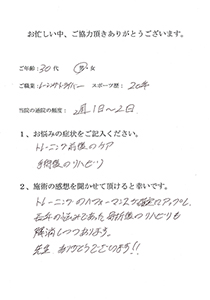 お忙しい中、ご協力頂きありがとうございます。
ご年齢：30代　男・女
ご職業：レーシングドライバー　スポーツ歴：20年
当院の通院の頻度：2月1日〜2日
1、お悩みの症状をご記入ください。
トレーニング前後のケア
手術後のリハビリ
2、施術の感想を聞かせて頂けると幸いです。
トレーニングのパフォーマンスが確実にアップし、
長年の悩みであった骨折後のリハビリも
解消しつつあります。
先生 ありがとうございます!!